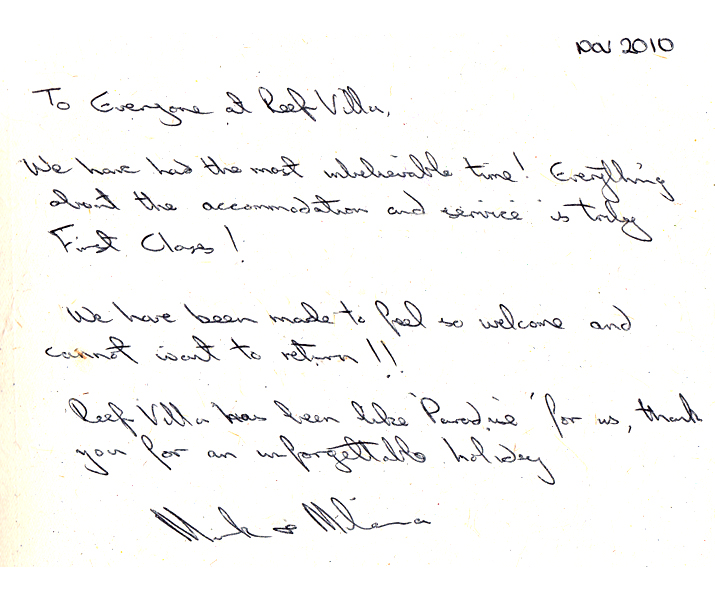 Nov 2010
To Everyone at Reef Villa,
We have had the most unbelievable time! Everything
about the accommodation and service is truly
First Class!
We have been made to feel so welcome and
cannot wait to return!!
Reef Villa has been like 'Paradise' for us, thank
you for an unforgettable holiday
Mark & Milena